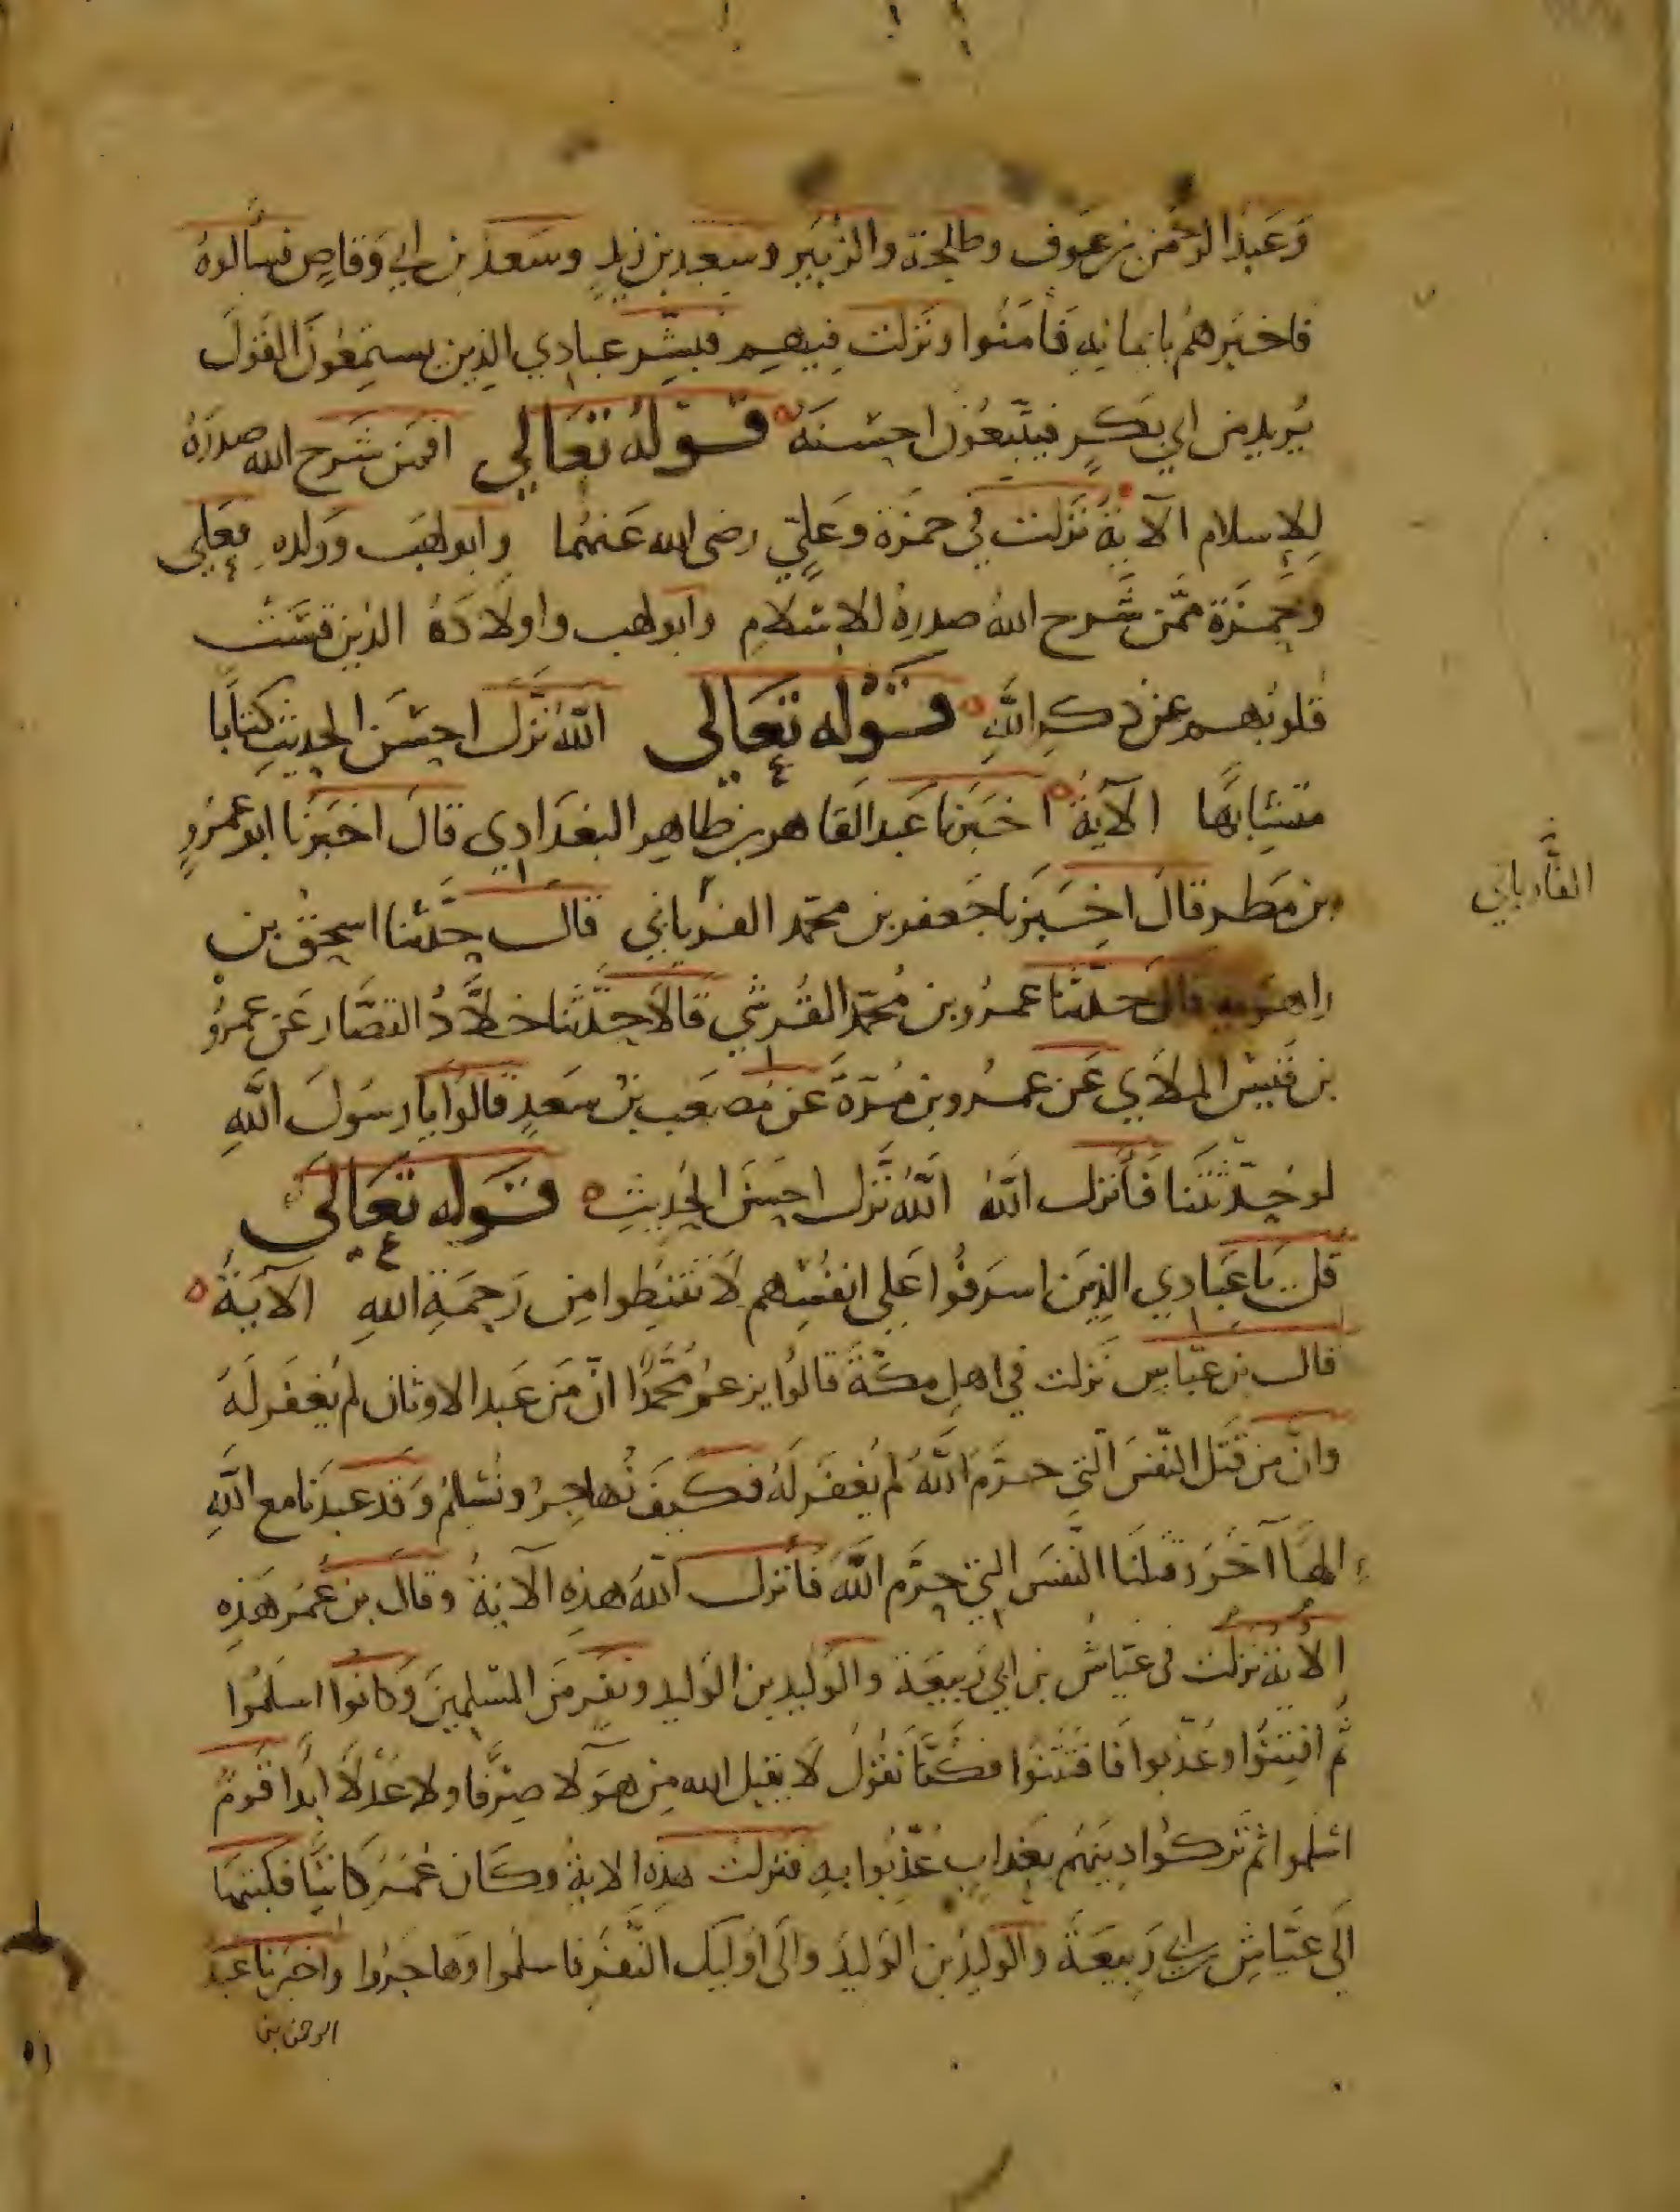 وَعَبْدُ الرحمن بن عَوف وطلحة والزُّبَير وسعيد بن زيدٍ وسَعد بن ابي وَقاصٍ فسألوهُ
فاخبرهُم بايمانهِ فَأمَنُوا ونَزلت فيهم فبشّر عبادي الذين يستمِعُونَ القَولَ
يُريد من ابي بَكرٍ فيتّبعُونَ احسَنهُ قَولهُ تعَالي افمَن شرح الله صدرَهُ
لِلاسلام الآية نَزلت في حمزة وعَليّ رضى الله عَنهُما وابو لهَب وَولده فعَلي
وحمزة ممّن شَرح اللهُ صدرهُ للاسلام وابو لهب واولادَهُ الذين قسَت
قلوبُهم عن ذكر اللَّهِ قَوْله تعَالى اللَّهُ نزَّل احسَن الحديث كتابًا
متشابهًا الآيةُ اخبَرنا عَبد القَاهر بن طاهر البغدَادي قالَ اخبرَنا ابو عَمرٍو
بن مَطر قالَ اخبَرنا جَعفر بن محمّد الفريابي قال حدَّثنا اسحق بن
راهويه قالَ حدّثنا عمرُو بن مُحمّد القُرشي قالَ حدّثنا خلَّادُ الصَّفار عَن عمرو
بن قَيس الملاي عَن عمرو بن مُرّةَ عَن مُصعَب بن سَعدٍ قالوا يا رسَولَ اللَّهِ
لو حدّثتَنا فَأنزل اللَّهُ اللَّهُ نَزَّل احسَنَ الحديثِ قَوله تعَالى
قل يا عبَادي الذِينَ اسرَفُوا عَلى انفُسِهم لَا تقنَطوا مِن رَحمَةِ اللهِ الآيَةُ
قال بن عبّاسٍ نَزلت في اهلِ مكّةَ قالُوا يزعمُ مُحَمَّدٌ انّ مَن عَبد الاوثان لم يُغفَر لَهُ
وانّ من قَتل النّفسَ الّتي حرَّمَ اللَّهُ لم يُغفَر لَهُ فكيفَ نُهاجِرُ ونُسْلمُ وَقد عَبدنا مع اللَّهِ
الهًا آخَرَ وقتلنَا النّفسَ التي حرَّم اللَّهُ فَأنزل اللهُ هذه الآيةُ وقالَ بن عُمر هَذهِ
الآيةُ نزلت في عيّاش بن ابي رَبيعَة والوَليد بن الوَليد ونفَر مَن المسْلِمينَ وَكانُوا اسلَمُوا
ثُم افتِنُوا وعُذّبوا فافتَتنُوا فكُنّا نقُولُ لَا يقبل الله مِن هَولآ صِرْفًا ولا عُدْلًا ابدًا قَومٌ
اسْلموا ثم تركُوا دِينَهُم بعَذابٍ عُذِّبُوا بِه فنزلت هذه الآية وكانَ عُمَرُ كَاتبًا فكتبَها
الَى عَيّاش بن ابي رَبيعَةَ والوليد بن الوَليد والَى اوليك النَّفَرِ فاسلمُوا وَهاجَرُوا واخبرنا عبد
الرحمن بن
الفَاريابي
٥١